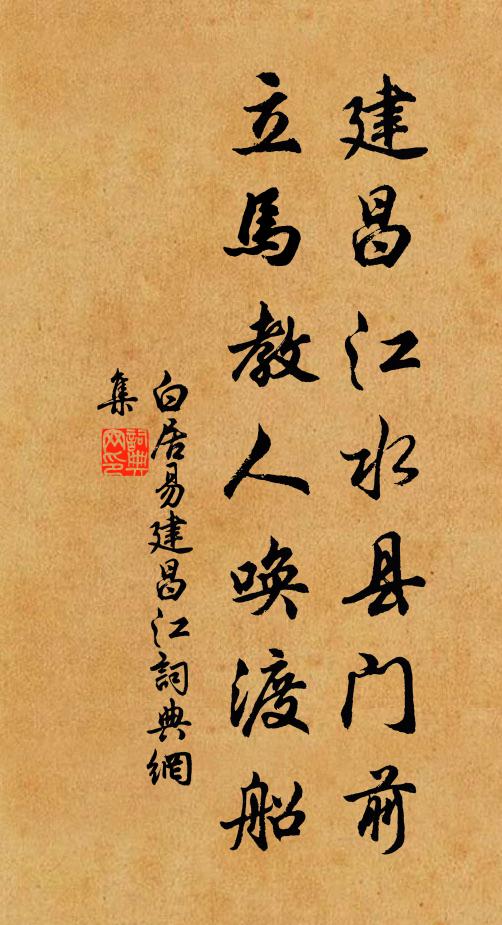 建昌江水县门前
立馬教人唤渡船
白居易建昌江詞典網
集
詞典網印